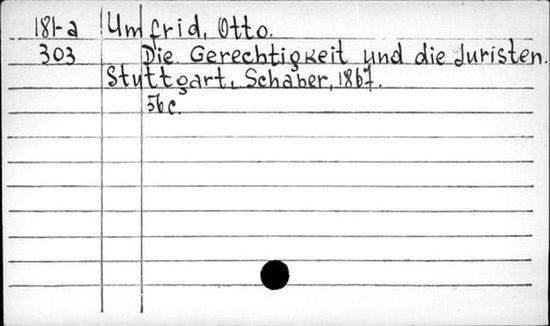 181-a Umfrid, Otto.
303 Die Gerechtigkeit und die Juristen.
Stuttgart, Schaber, 1867.
56 c.